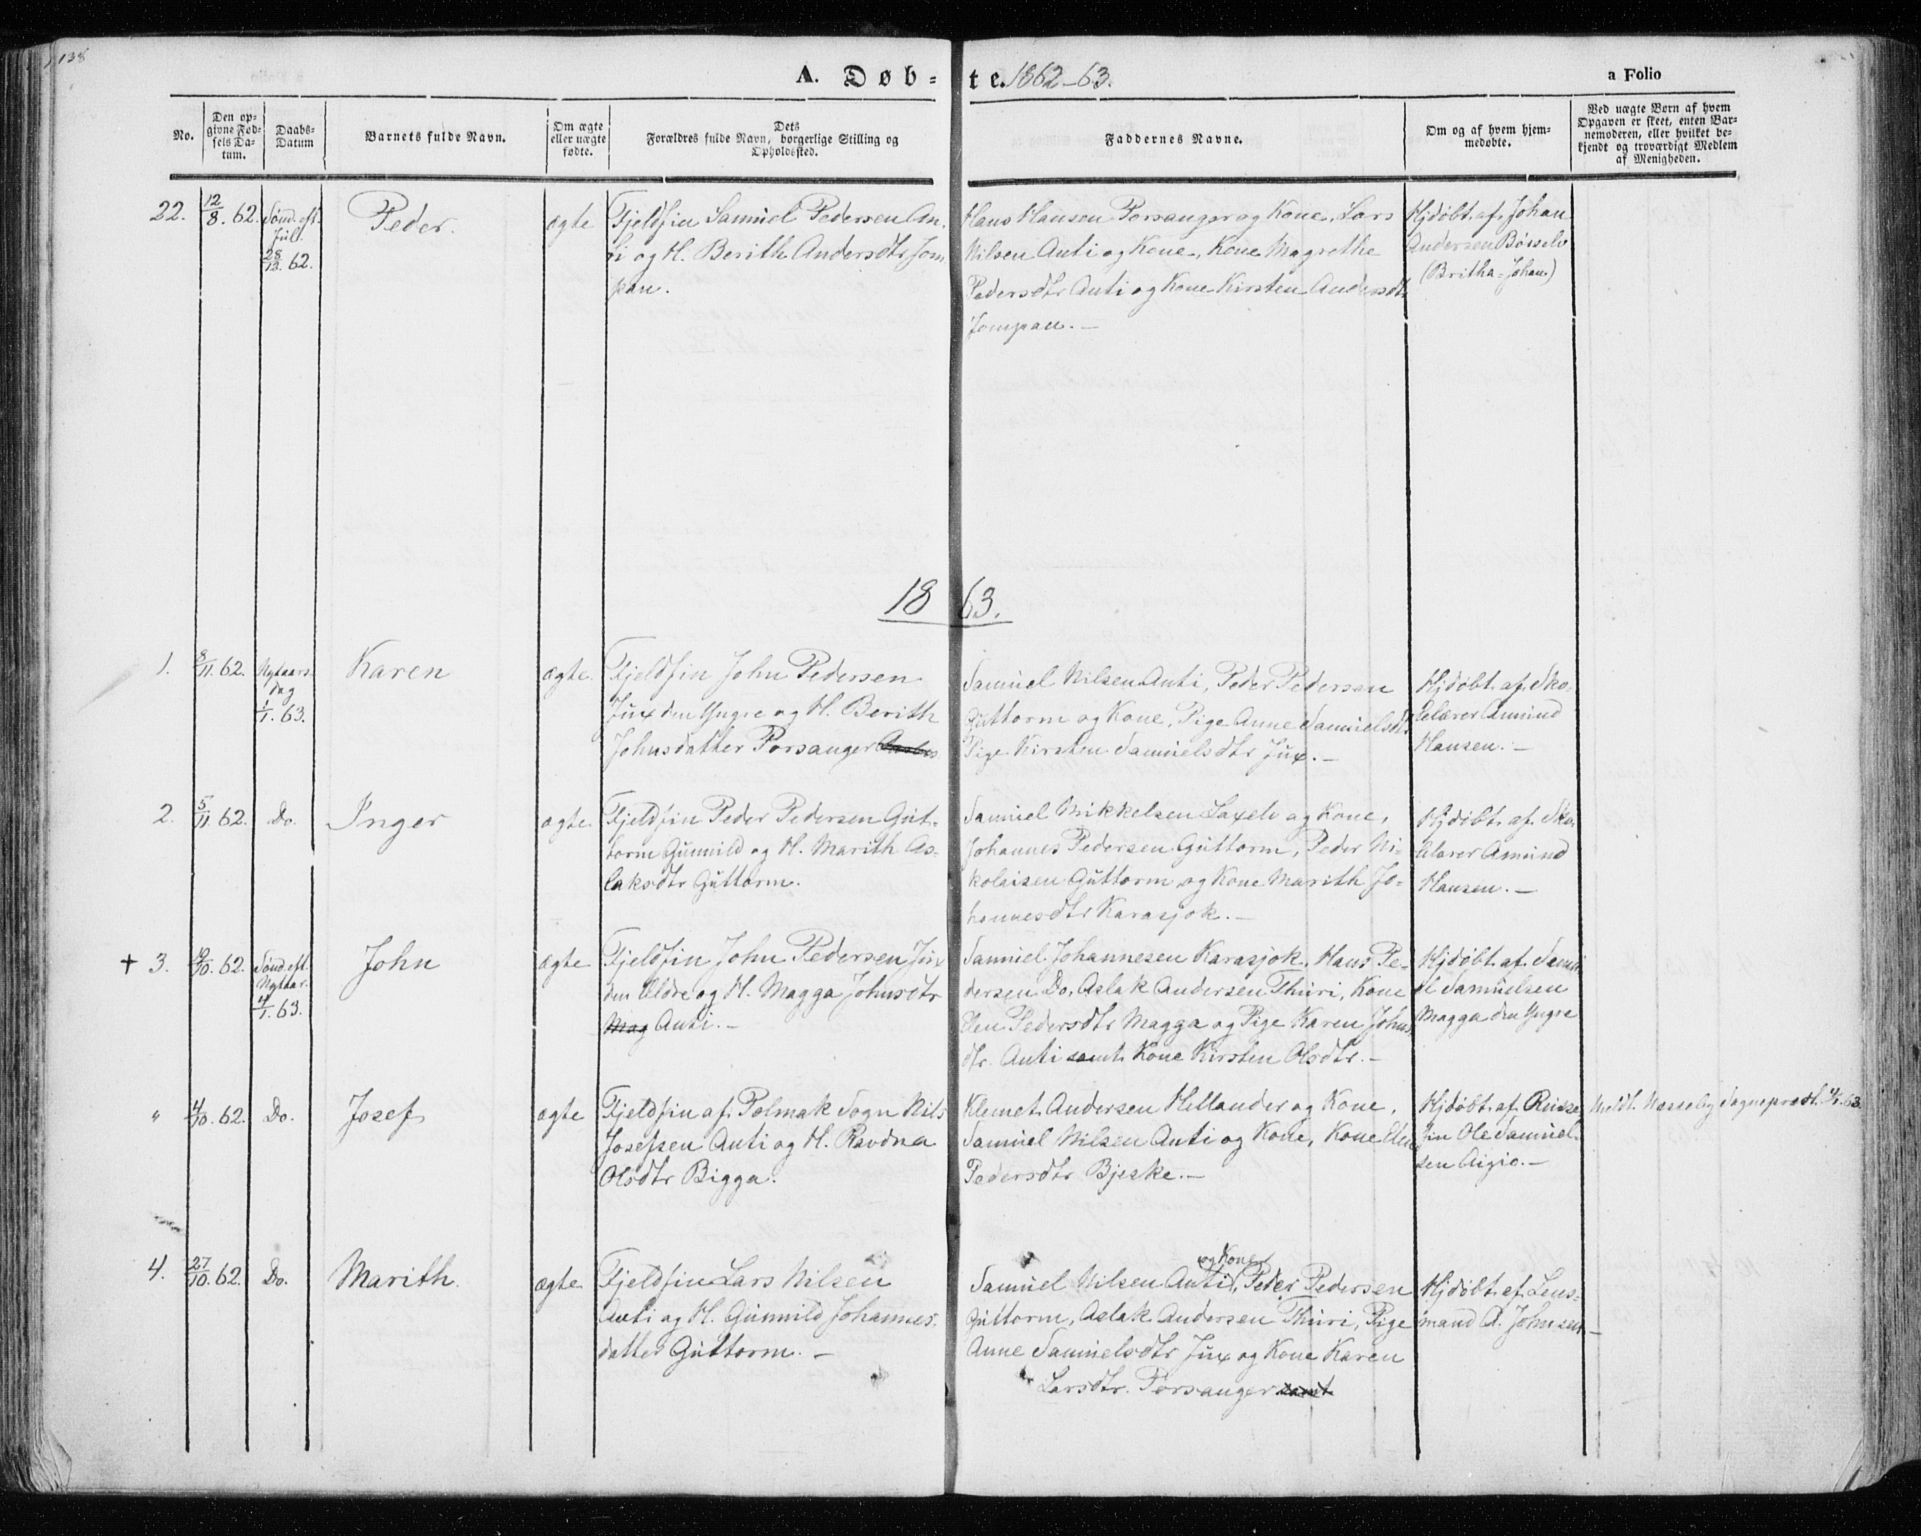 138
A. Døb-te. 1862-63.
a Folio
No.
Den op-
givne Fød-
sels Da-
tum.
Daabs-
Datum
Barnets fulde Navn.
Om ægte
eller uægte
fødte.
Dets
Forældres fulde Navn, borgerlige Stilling og
Opholdssted.
Faddernes Navne.
Om og af hvem hjem-
medøbte.
Ved uægte Børn af hvem
Opgaven er skeet, enten Bar-
nemoderen, eller hvilket be-
kjendt og troværdigt Medlem
af Menigheden.
22.
12/8. 62.
Sønd. eft.
Jul.
28/12. 62.
Peder.
ægte
Fjeldfin Samuel Pedersen An-
ti og H. Berith Andersdtr Jom
pan.
Hans Hansen Porsanger og Kone, Lars
Nilsen Anti og Kone, Kone Magrethe
Pedersdtr Anti og Kone Kirsten Andersdtr
Jompan. —
Hjdøbt. af. Johan
Andersen Bösselv
(Britha-Johan)
1863.
1.
8/11. 62.
Nytaars-
dag
1/1. 63.
Karen
ægte.
Fjeldfin John Pedersen
Jux den Yngre og H. Berith
Johnsdatter Porsanger
Samuel Nilsen Anti, Peder Pedersen
Guttorm og Kone, Pige Anne Samuelsdtr
Pige Kirsten Samuelsdtr Jux. —
Hjdøbt. af. Sko-
lelærer Amund
Hansen. —
2.
5/11 62.
Do.
Inger
ægte.
Fjeldfin Peder Pedersen Gut-
torm Gunnild og H. Marith As-
laksdtr Guttorm.
Samuel Mikkelsen Laxelv og Kone,
Johannes Pedersen Guttorm, Peder Ni-
kolaisen Guttorm og Kone Marith Jo-
hannesdtr Karasjok. —
Hjdøbt. af. Sko-
lelærer Amund
Hansen. —
+ 3.
19/10. 62.
Sønd. eft.
Nytaar.
4/1. 63.
John
ægte
Fjeldfin John Pedersen Jux
den Ældre og H. Magga Johnsdtr
Mag Anti. —
Samuel Johannesen Karasjok, Hans Pe-
dersen Do, Aslak Andersen Thuri, Kone
Elen Pedersdtr Magga og Pige Karen Johns
dtr. Anti samt Kone Kirsten Olsdtr. —
Hjdøbt. af. Samu
el Samuelsen
Magga den Yngre
"
4/10. 62.
Do.
Josef
ægte
Fjeldfin af Polmak Sogn Nils
Josefsen Anti og H. Ravdna
Olsdtr Bigga.
Klemet Andersen Hellander og Kone,
Samuel Nilsen Anti og Kone, Kone Elen
Pedersdtr Bjeske. —
Hjdøbt. af
fin Ole Samuel-
sen Aigio. —
Meldt. Næsseby Sognepræst
4.
27/10. 62.
Do.
Marith.
ægte
Fjeldfin Lars Nilsen
Anti og H. Gunnild Johannes-
datter Guttorm. —
og Kone
Samuel Nilsen Anti, Peder Pedersen
Guttorm, Aslak Andersen Thuri, Pige
Anne Samuelsdtr Jux og Kone Karen
Larsdtr. Porsanger samt
Hjdøbt. af. Lens-
mand A. Johnsen —